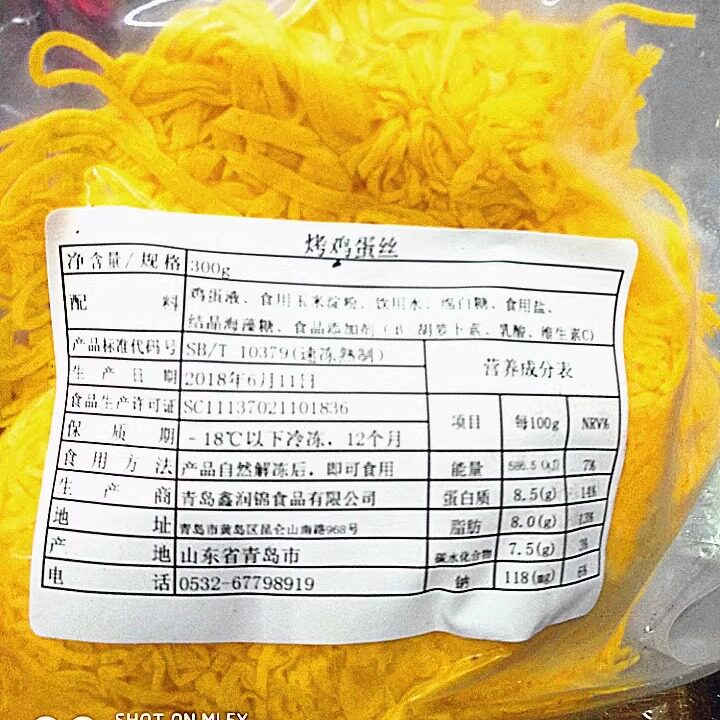 烤鸡蛋丝
净含量/规格 300g
配料 鸡蛋液、食用玉米淀粉、饮用水、绵白糖、食用盐、
结晶海藻糖、食品添加剂( 胡萝卜素、乳酸、维生素C)
产品标准代码号 SB/T 10379(速冻熟制)
生产日期 2018年6月11日
食品生产许可证 SC11137021101836
保质期 -18℃以下冷冻，12个月
食用方法 产品自然解冻后，即可食用
生产商 青岛鑫润锦食品有限公司
地址 青岛市黄岛区昆仑山南路968号
产地 山东省青岛市
电话 0532-67798919
营养成分表
项目 每100g NRV%
能量 586.5(KJ) 7%
蛋白质 8.5(g) 14%
脂肪 8.0(g) 13%
碳水化合物 7.5(g) 3%
钠 118(mg) 6%
SHOT ON MI 6X